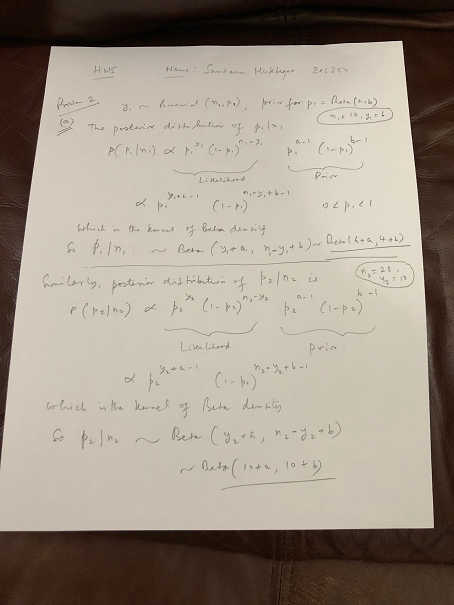 HW5 Name: Santanu Mukherjee 201254
Problem 2 y₁ ~ Binomial (n₁, p₁), prior for p₁ = Beta(a, b)
n₁ = 10, y₁ = 6
(a) The posterior distribution of p₁|n₁
P(p₁|n₁) ∝ p₁^{y₁} (1-p₁)^{n₁-y₁} p₁^{a-1} (1-p₁)^{b-1}
Likelihood Prior
∝ p₁^{y₁+a-1} (1-p₁)^{n₁-y₁+b-1} 0 < p₁ < 1
which is the kernel of Beta density.
So p₁|n₁ ~ Beta (y₁+a, n₁-y₁+b) ~ Beta(6+a, 4+b)
n₂ = 20, y₂ = 10
Similarly, posterior distribution of p₂|n₂ is
P(p₂|n₂) ∝ p₂^{y₂} (1-p₂)^{n₂-y₂} p₂^{a-1} (1-p₂)^{b-1}
Likelihood prior
∝ p₂^{y₂+a-1} (1-p₂)^{n₂-y₂+b-1}
which is the kernel of Beta density
So p₂|n₂ ~ Beta (y₂+a, n₂-y₂+b)
~ Beta(10+a, 10+b)